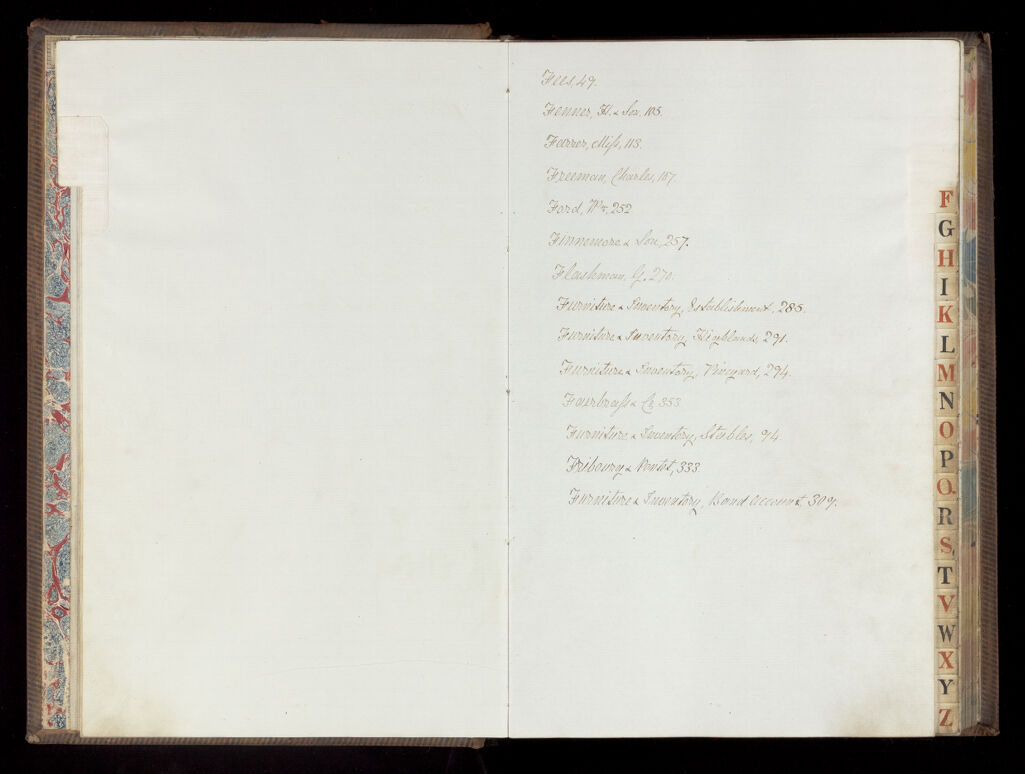 Fees, 49.
Fenner, H. & Son, 105.
Farrer, Miss, 113.
Freeman, Charles, 187.
Ford, Wm, 252
Finnemore & Son, 257.
Flashman, G. 270.
Furniture & Inventory, Establishment, 285.
Furniture & Inventory, Highlands, 291.
Furniture & Inventory, Vineyard, 294.
Fairbrass & Co. 353
Furniture & Inventory, Stables, 94
Fribourg & Pontet, 333
Furniture & Inventory, Band Account, 309.
F
G
H
I
K
L
M
N
O
P
Q.
R
S
T
V
W
X
Y
Z